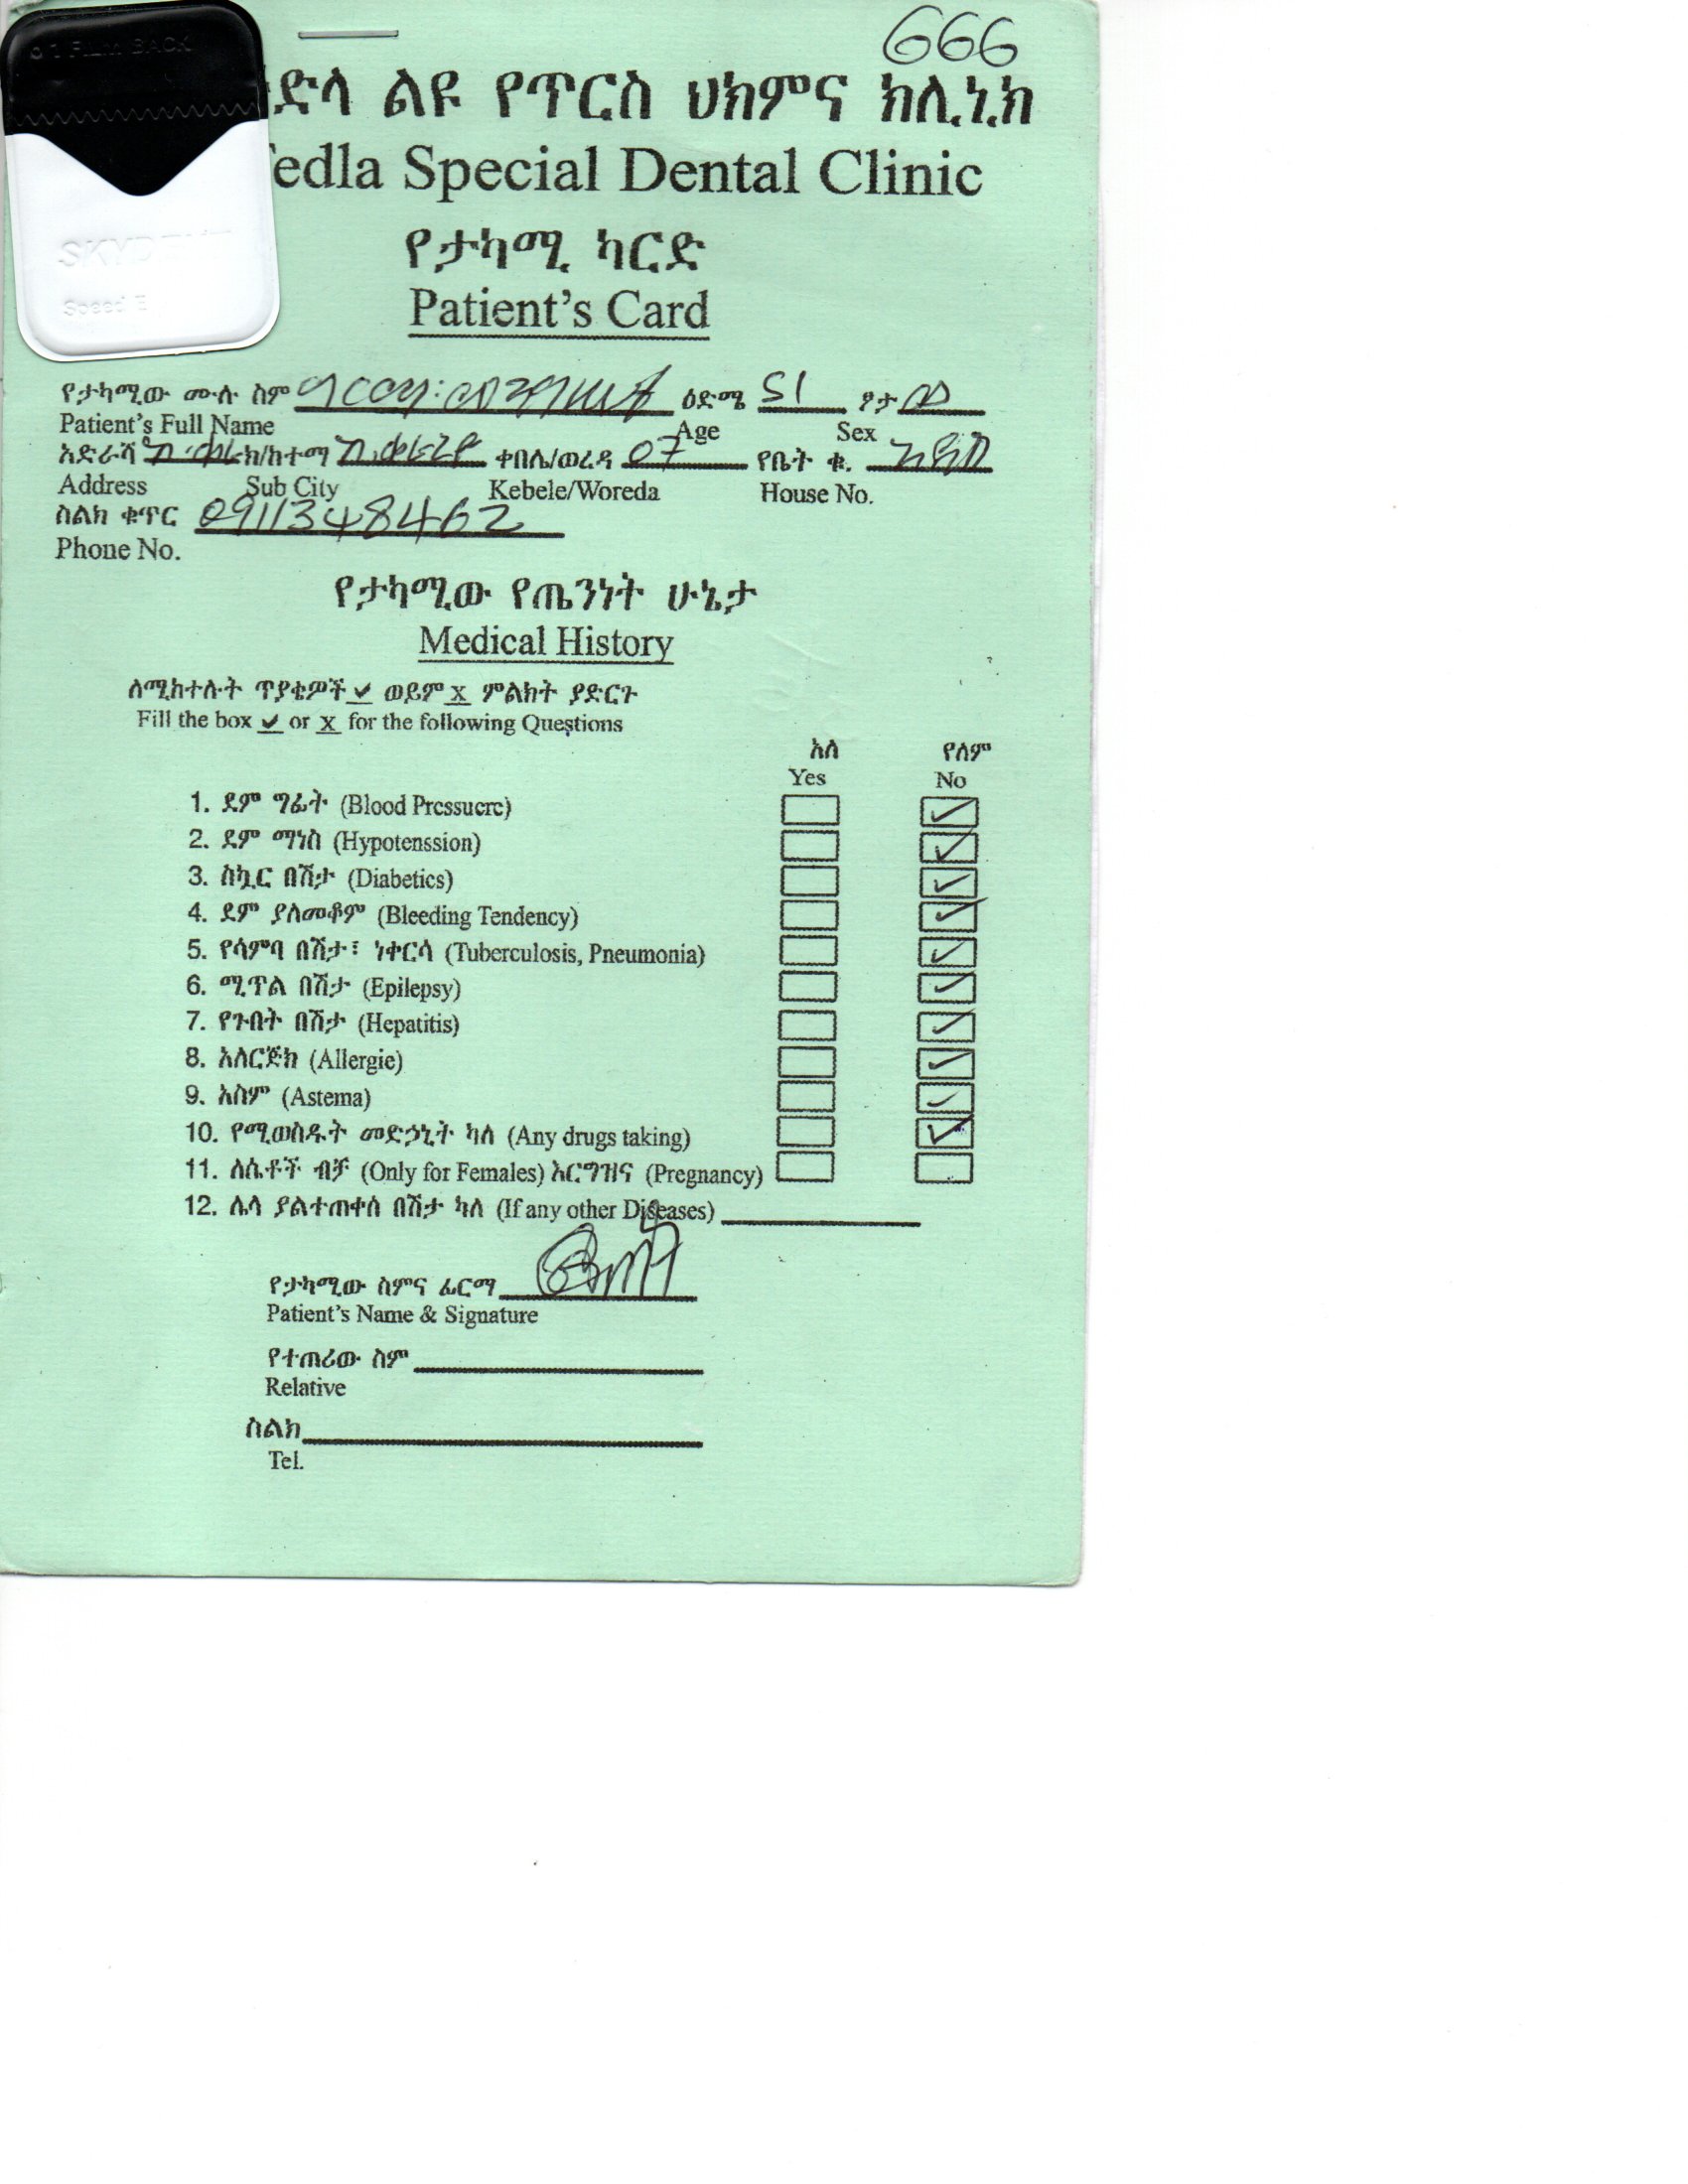 666
FILM BACK
ድላ ልዩ የጥርስ ህክምና ክሊኒክ
edla Special Dental Clinic
SKYD
Speed E
የታካሚ ካርድ
Patient's Card
የታካሚው ሙሉ ስም ዕድሜ 51 ፆታ ወ
Patient's Full Name Age Sex
አድራሻ ክ/ከተማ ቀበሌ/ወረዳ 07 የቤት ቁ. አዲስ
Address Sub City Kebele/Woreda House No.
ስልክ ቁጥር 0911348462
Phone No.
የታካሚው የጤንነት ሁኔታ
Medical History
ለሚከተሉት ጥያቄዎች ✔ ወይም x ምልክት ያድርጉ
Fill the box ✔ or x for the following Questions
አለ የለም
Yes No
1. ደም ግፊት (Blood Pressuere) ✓
2. ደም ማነስ (Hypotenssion) ✓
3. ስኳር በሽታ (Diabetics) ✓
4. ደም ያለመቆም (Bleeding Tendency) ✓
5. የሳምባ በሽታ፣ ነቀርሳ (Tuberculosis, Pneumonia) ✓
6. ሚጥል በሽታ (Epilepsy) ✓
7. የጉበት በሽታ (Hepatitis) ✓
8. አለርጅክ (Allergie) ✓
9. አስም (Astema) ✓
10. የሚወስዱት መድኃኒት ካለ (Any drugs taking) ✓
11. ለሴቶች ብቻ (Only for Females) እርግዝና (Pregnancy)
12. ሌላ ያልተጠቀሰ በሽታ ካለ (If any other Diseases)
የታካሚው ስምና ፊርማ
Patient's Name & Signature
የተጠሪው ስም
Relative
ስልክ
Tel.